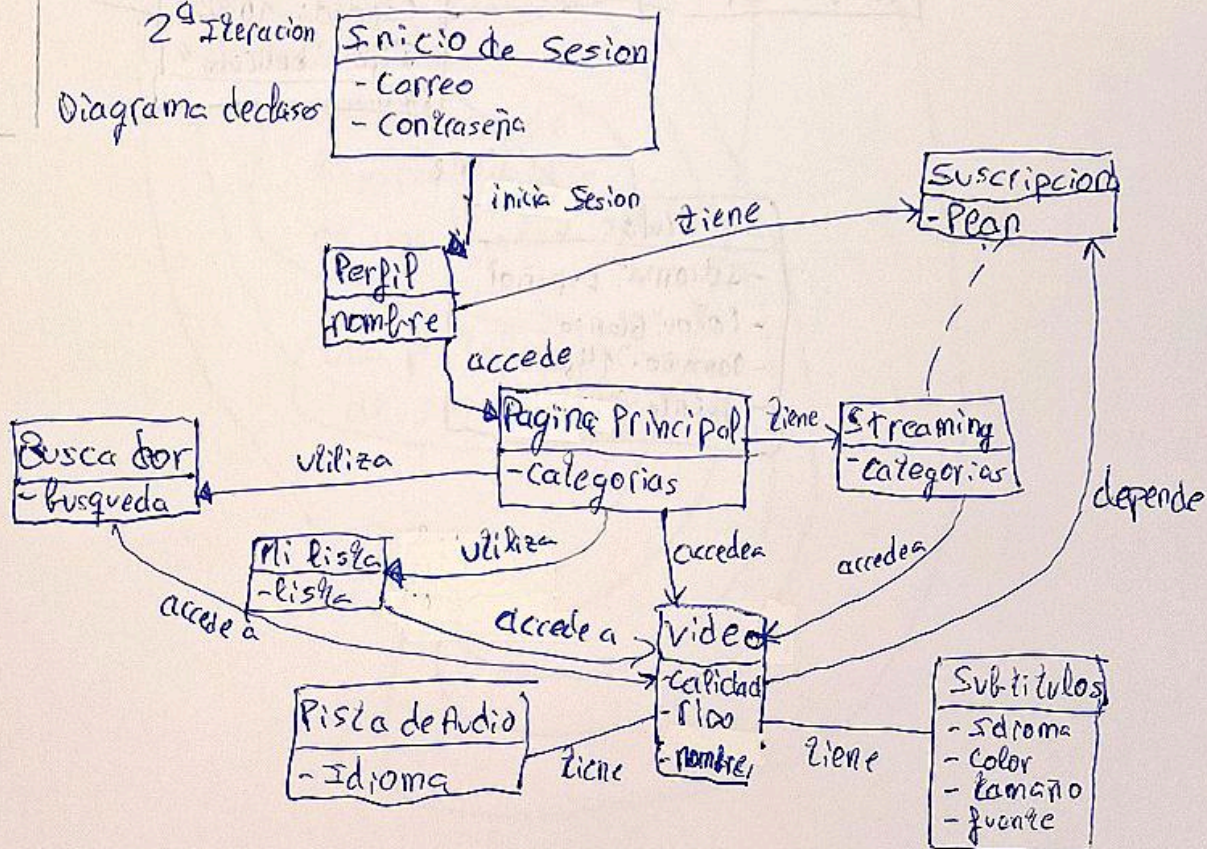 2ª Iteracion
Diagrama de clases
Inicio de Sesion
- Correo
- Contraseña
inicia Sesion
Suscripcion
- Plan
tiene
Perfil
nombre
accede
Pagina Principal
- Categorias
tiene
Streaming
- Categorias
depende
Buscador
- busqueda
utiliza
Mi lista
- lista
utiliza
accede a
accede a
accede a
accede a
video
- Calidad
- nombre
Pista de Audio
- Idioma
tiene
tiene
Subtitulos
- Idioma
- Color
- tamaño
- fuente
- Idioma: Español
- Color: Blanco